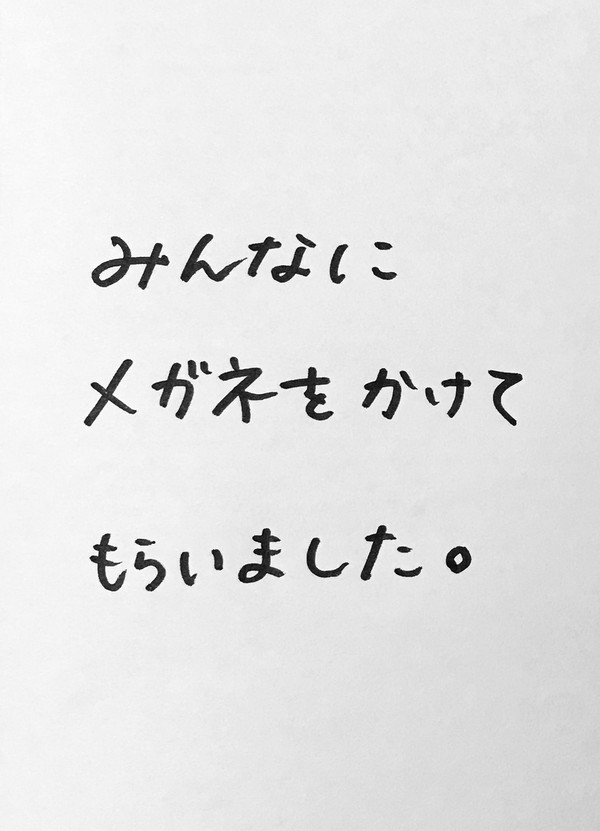 みんなに
メガネをかけて
もらいました。